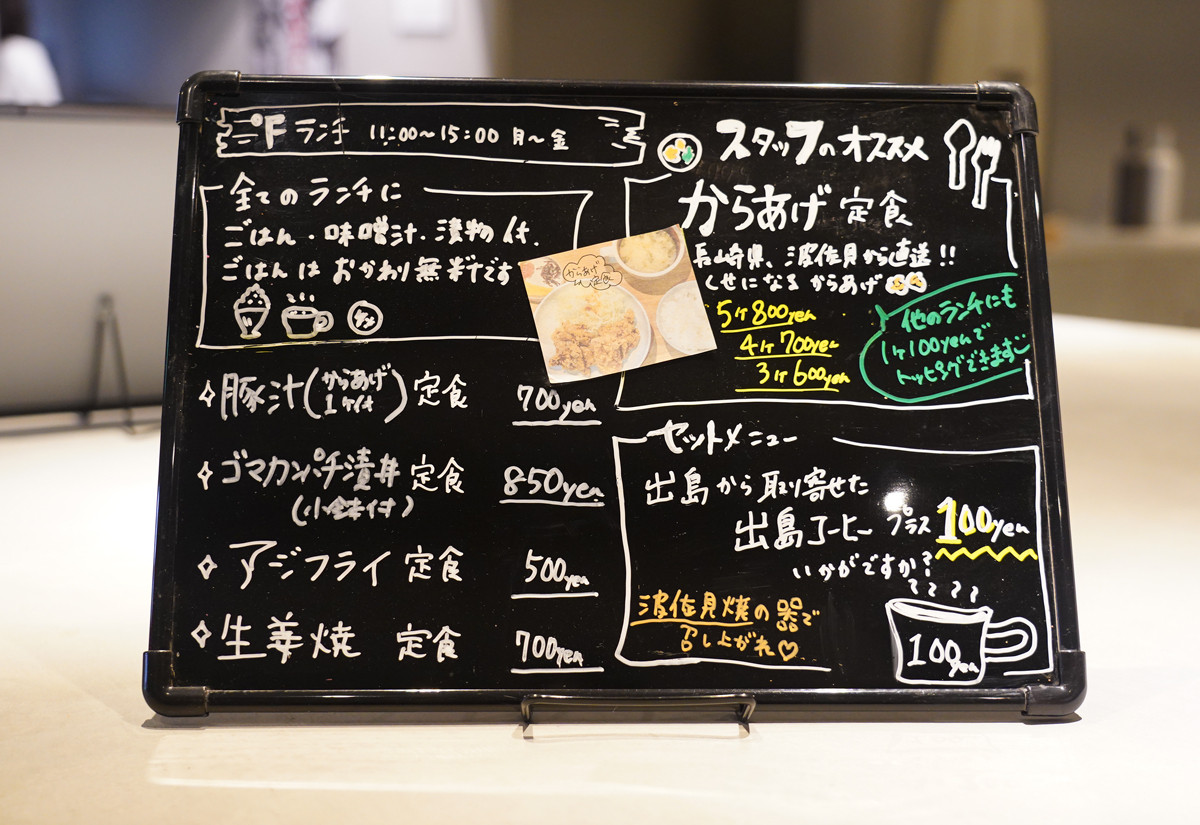 °F ランチ 11:00〜15:00 月〜金
全てのランチに
ごはん・味噌汁・漬物付.
ごはんはおかわり無料です
豚汁(からあげ1ヶ付)定食 700yen
ゴマカンパチ漬丼定食 850yen
(小鉢付)
アジフライ定食 500yen
生姜焼 定食 700yen
スタッフのオススメ
からあげ定食
長崎県、波佐見から直送!!
くせになるからあげ
からあげ
定食
5ヶ800yen
4ヶ700yen
3ヶ600yen
他のランチにも
1ヶ100yenで
トッピングできます
セットメニュー
出島から取り寄せた
出島コーヒー プラス100yen
いかがですか?
波佐見焼の器で
召し上がれ♡
100yen